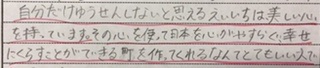 自分だけゆうせんしないと思えるえいちは美しい心
を持っています。その心を使って日本を心がやすらぐ、幸せ
にくらすことができる町を作ってくれるなんてとてもいい人で